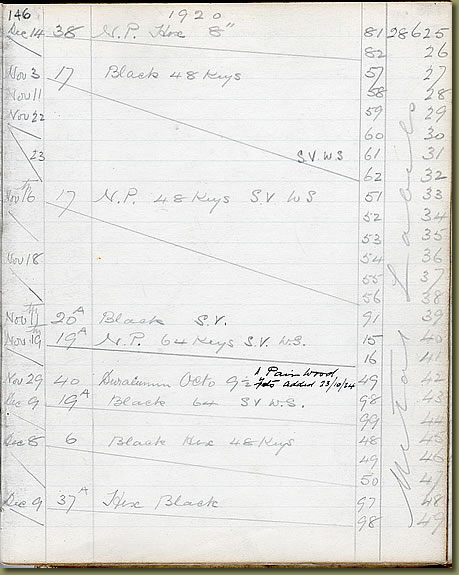 146 1920
Dec 14 38 N.P. Hex 8" 81 28625
82 26
Nov 3 17 Black 48 Keys 57 27
Nov 11 58 28
Nov 22 59 29
60 30
23 S.V. W.S 61 31
62 32
Nov 16 17 N.P. 48 Keys S.V W.S 51 33
52 34
53 35
Nov 18 54 36
55 37
56 38
Nov 11 20A Black S.V. 91 39
Nov 19 19A N.P. 64 Keys S.V. W.S. 15 40
16 41
1 Pair Wood
Nov 29 40 Octo 9½ added 23/10/24 49 42
Dec 9 19A Black 64 S V W.S. 98 43
99 44
Dec 8 6 Black Hex 48 Keys 48 45
49 46
50 47
Dec 9 37A Hex Black 97 48
98 49
Metal Labels